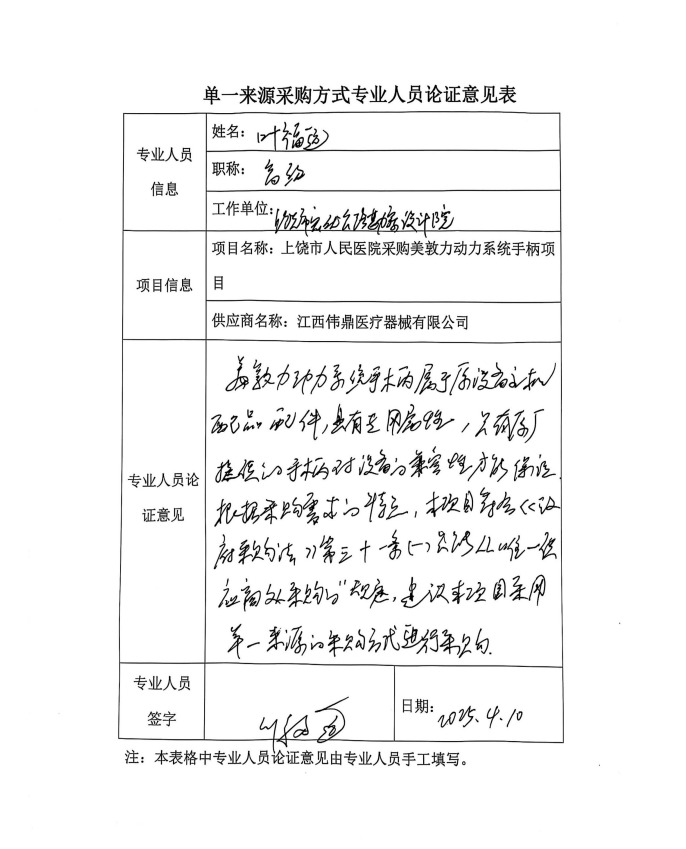 单一来源采购方式专业人员论证意见表
专业人员
信息
姓名：叶福
职称：高级
工作单位：勘察设计院
项目信息
项目名称：上饶市人民医院采购美敦力动力系统手柄项
目
供应商名称：江西伟鼎医疗器械有限公司
专业人员论
证意见
美敦力动力系统手柄属于原设备主机
配品配件，具有专用属性，只有原厂
提供的手柄对设备的兼容性才能保证.
根据采购需求的特定，本项目符合《政
府采购法》第三十一条(一)只能从唯一供
应商处采购的"规定，建议本项目采用
单一来源的采购方式进行采购.
专业人员
签字
日期：2025.4.10
注：本表格中专业人员论证意见由专业人员手工填写。